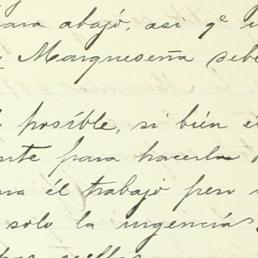 para abajó, asi qe
Marqueseña sebe
posíble, si bién él
nte para hacerla
él trabajo pero
solo la urgencia